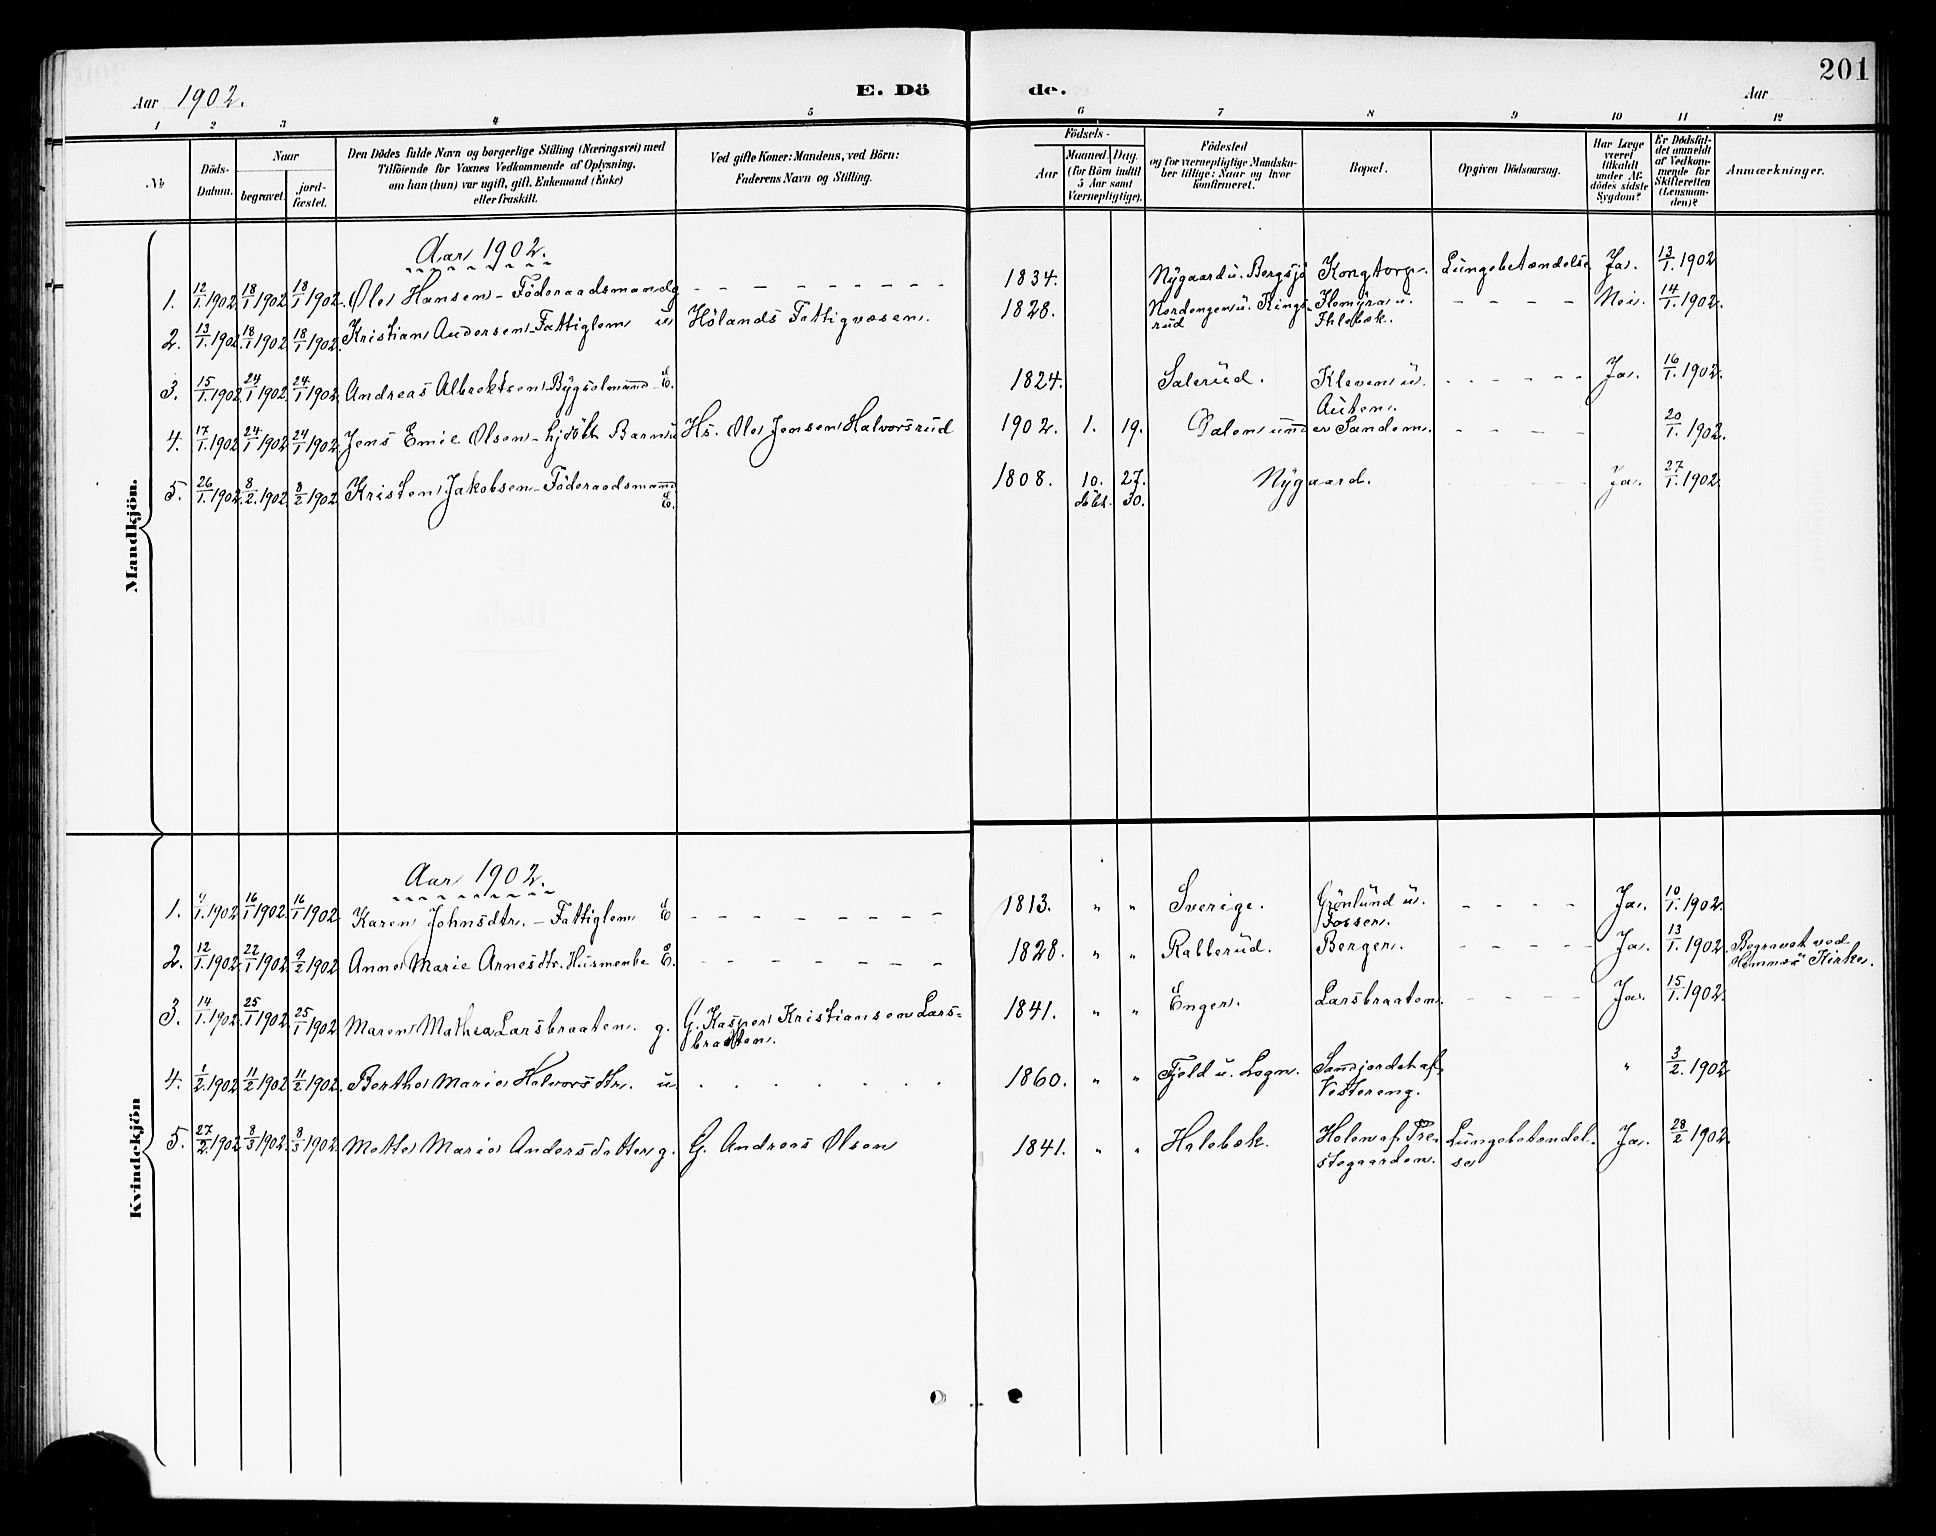 201
Aar 1902.
E. Dö
de.
Aar
1 2 3 4 5 6 7 8 9 10 11 12
No
Döds-
Datum.
Naar
begravet.
jord-
fæstet.
Den Dödes fulde Navn og borgerlige Stilling (Næringsvei) med
Tilföiende for Voxnes Vedkommende af Oplysning,
om han (hun) var ugift, gift, Enkemand (Enke)
eller fraskilt.
Ved gifte Koner: Mandens, ved Börn:
Faderens Navn og Stilling.
Födsels-
Aar
Maaned. Dag.
(for Börn indtil
5 Aar samt
Værnepligtige).
Födested
og for værnepligtige Mandska-
ber tillige: Naar og hvor
konfirmeret.
Bopæl.
Opgiven Dödsaarsag.
Har Læge
været
tilkaldt
under Af-
dödes sidste
Sygdom?
Er Dödsfal-
det anmeldt
af Vedkom-
mende for
Skifteretten
(Lensman-
den)?
Anmærkninger.
Mandkjön.
Aar 1902.
1. 12/1 1902 18/1 1902 18/1 1902. Ole Hansen - Föderaadsmand g - - - - 1834. Nygaard u. Bergsjö Kongtorp. Lungebetændelse Ja. 13/1. 1902
2. 13/1. 1902 18/1 1902 18/1 1902. Kristian Andersen - Fattiglem u Hölands Fattigvæsen. 1828. Nordengen u. Krings-
rud Hemyra u.
Ihlebæk. - - - - Nei. 14/1. 1902.
3. 15/1. 1902. 24/1 1902. 24/1 1902. Andreas Albrektsen - Bygselmand - E. 1824. Salerud. Kleven u.
Auten. - - - - Ja. 16/1. 1902.
4. 17/1. 1902 24/1 1902 24/1 1902. Jens Emil Olsen - hjdöbt Barn u Hs. Ole Jensen Halvorsrud 1902. 1. 19. Dalen under Sandem. - - - - 20/1. 1902.
5. 26/1. 1902. 8/2. 1902. 8/2 1902 Kristen Jakobsen - Föderaadsmand
E. 1808. 10. 27.
döbt. 30. Nygaard. - - - - Ja. 27/1. 1902.
Kvindekjön
Aar 1902.
1. /1. 1902 16/1 1902 16/1 1902 Karen Johnsdtr. - Fattiglem E - - - - 1813. " " Sverige. Grönlund u.
Fossen. - - - - Ja. 10/1. 1902.
2. 12/1. 1902 22/1 1902. 9/2 1902 Anne Marie Arnesdtr. Husmenke E. - - - - 1828. " " Rabberud. Berger. - - - - Ja. 13/1. 1902. Begravet ved
Hemnæs Kirke.
3. 14/1. 1902. 25/1 1902. 25/1 1902 Maren Mathea Larsbraaten. g. G. Kasper Kristiansen Lars=
braaten. 1841. " " Enger. Larsbraaten. - - - - Ja. 15/1. 1902.
4. 1/2. 1902 11/2 1902 11/2 1902. Berthe Marie Halvorsdtr. u. . . . . 1860. " " Fjeld u. Logn. Sandjordet af
Vestereng. " 3/2. 1902
5. 27/2. 1902. 8/3 1902. 8/3 1902. Mette Marie Andersdatter g. G. Andreas Olsen 1841. " " Halebæk. Holen af Pre-
stegaarden. Lungebetændel-
se Ja. 28/2 1902.